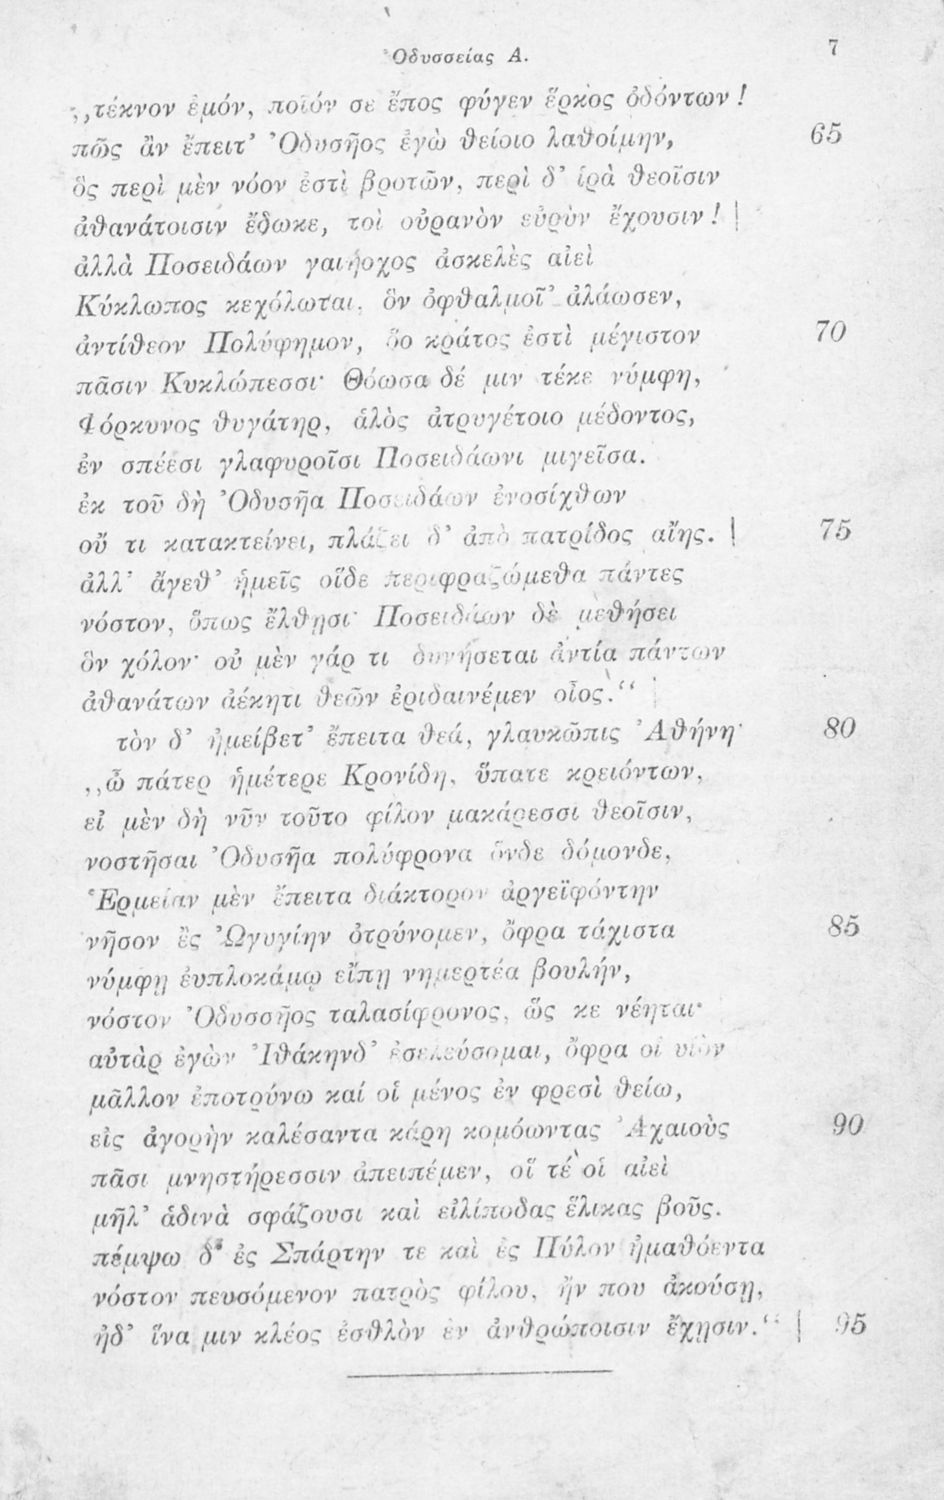 Ὀδυσσείας Α. 7
„τέκνον ἐμόν, ποῖόν σε ἔπος φύγεν ἕρκος ὀδόντων!
πῶς ἂν ἔπειτ’ Ὀδυσῆος ἐγὼ θείοιο λαθοίμην, 65
ὃς περὶ μὲν νόον ἐστὶ βροτῶν, περὶ δ’ ἱρὰ θεοῖσιν
ἀθανάτοισιν ἔδωκε, τοὶ οὐρανὸν εὐρὺν ἔχουσιν!
ἀλλὰ Ποσειδάων γαιήοχος ἀσκελὲς αἰεὶ
Κύκλωπος κεχόλωται, ὃν ὀφθαλμοῦ ἀλάωσεν,
ἀντίθεον Πολύφημον, ὅο κράτος ἐστὶ μέγιστον 70
πᾶσιν Κυκλώπεσσι· Θόωσα δέ μιν τέκε νύμφη,
Φόρκυνος θυγάτηρ, ἁλὸς ἀτρυγέτοιο μέδοντος,
ἐν σπέεσι γλαφυροῖσι Ποσειδάωνι μιγεῖσα.
ἐκ τοῦ δὴ Ὀδυσῆα Ποσειδάων ἐνοσίχθων
οὔ τι κατακτείνει, πλάζει δ’ ἀπὸ πατρίδος αἴης. 75
ἀλλ’ ἄγεθ’ ἡμεῖς οἵδε περιφραζώμεθα πάντες
νόστον, ὅπως ἔλθῃσι· Ποσειδάων δὲ μεθήσει
ὃν χόλον· οὐ μὲν γάρ τι δυνήσεται ἀντία πάντων
ἀθανάτων ἀέκητι θεῶν ἐριδαινέμεν οἶος.“
τὸν δ’ ἠμείβετ’ ἔπειτα θεά, γλαυκῶπις Ἀθήνη· 80
„ὦ πάτερ ἡμέτερε Κρονίδη, ὕπατε κρειόντων,
εἰ μὲν δὴ νῦν τοῦτο φίλον μακάρεσσι θεοῖσιν,
νοστῆσαι Ὀδυσῆα πολύφρονα ὅνδε δόμονδε,
Ἑρμείαν μὲν ἔπειτα διάκτορον ἀργεϊφόντην
νῆσον ἐς Ὠγυγίην ὀτρύνομεν, ὄφρα τάχιστα 85
νύμφῃ ἐυπλοκάμῳ εἴπῃ νημερτέα βουλήν,
νόστον Ὀδυσσῆος ταλασίφρονος, ὥς κε νέηται·
αὐτὰρ ἐγὼν Ἰθάκηνδ’ ἐσελεύσομαι, ὄφρα οἱ υἱὸν
μᾶλλον ἐποτρύνω καί οἱ μένος ἐν φρεσὶ θείω,
εἰς ἀγορὴν καλέσαντα κάρη κομόωντας Ἀχαιοὺς 90
πᾶσι μνηστήρεσσιν ἀπειπέμεν, οἵ τέ οἱ αἰεὶ
μῆλ’ ἁδινὰ σφάζουσι καὶ εἰλίποδας ἕλικας βοῦς.
πέμψω δ’ ἐς Σπάρτην τε καὶ ἐς Πύλον ἠμαθόεντα
νόστον πευσόμενον πατρὸς φίλου, ἤν που ἀκούσῃ,
ἠδ’ ἵνα μιν κλέος ἐσθλὸν ἐν ἀνθρώποισιν ἔχῃσιν.“ 95